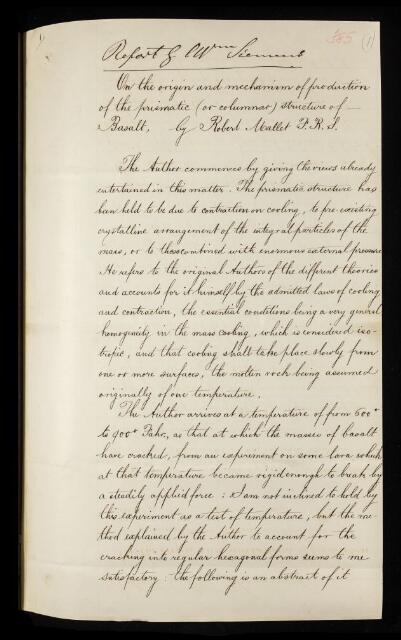 385 (1)
Report of C Wm Siemens
On the origin and mechanism of production
of the prismatic (or columnar) structure of —
Basalt, by Robert Mallet F.R.S.
The Author commences by giving the views already
entertained in this matter. The prismatic structure has
been held to be due to contraction on cooling, to pre-existing
crystalline arrangement of the integral particles of the
mass, or to these combined with enormous external pressure
He refers to the original Authors of the different theories
and accounts for it himself by the admitted laws of cooling
and contraction, the essential conditions being a very general
homogeneity in the mass cooling, which is considered iso-
tropic, and that cooling shall take place slowly from
one or more surfaces, the molten rock being assumed
originally of one temperature.
The Author arrives at a temperature of from 600°
to 900° Fahr., as that at which the masses of basalt
have cracked, from an experiment on some lava which
at that temperature became rigid enough to break by
a steadily applied force: I am not inclined to hold by
this experiment as a test of temperature, but the me-
thod explained by the Author to account for the
cracking into regular hexagonal forms seems to me
satisfactory: the following is an abstract of it